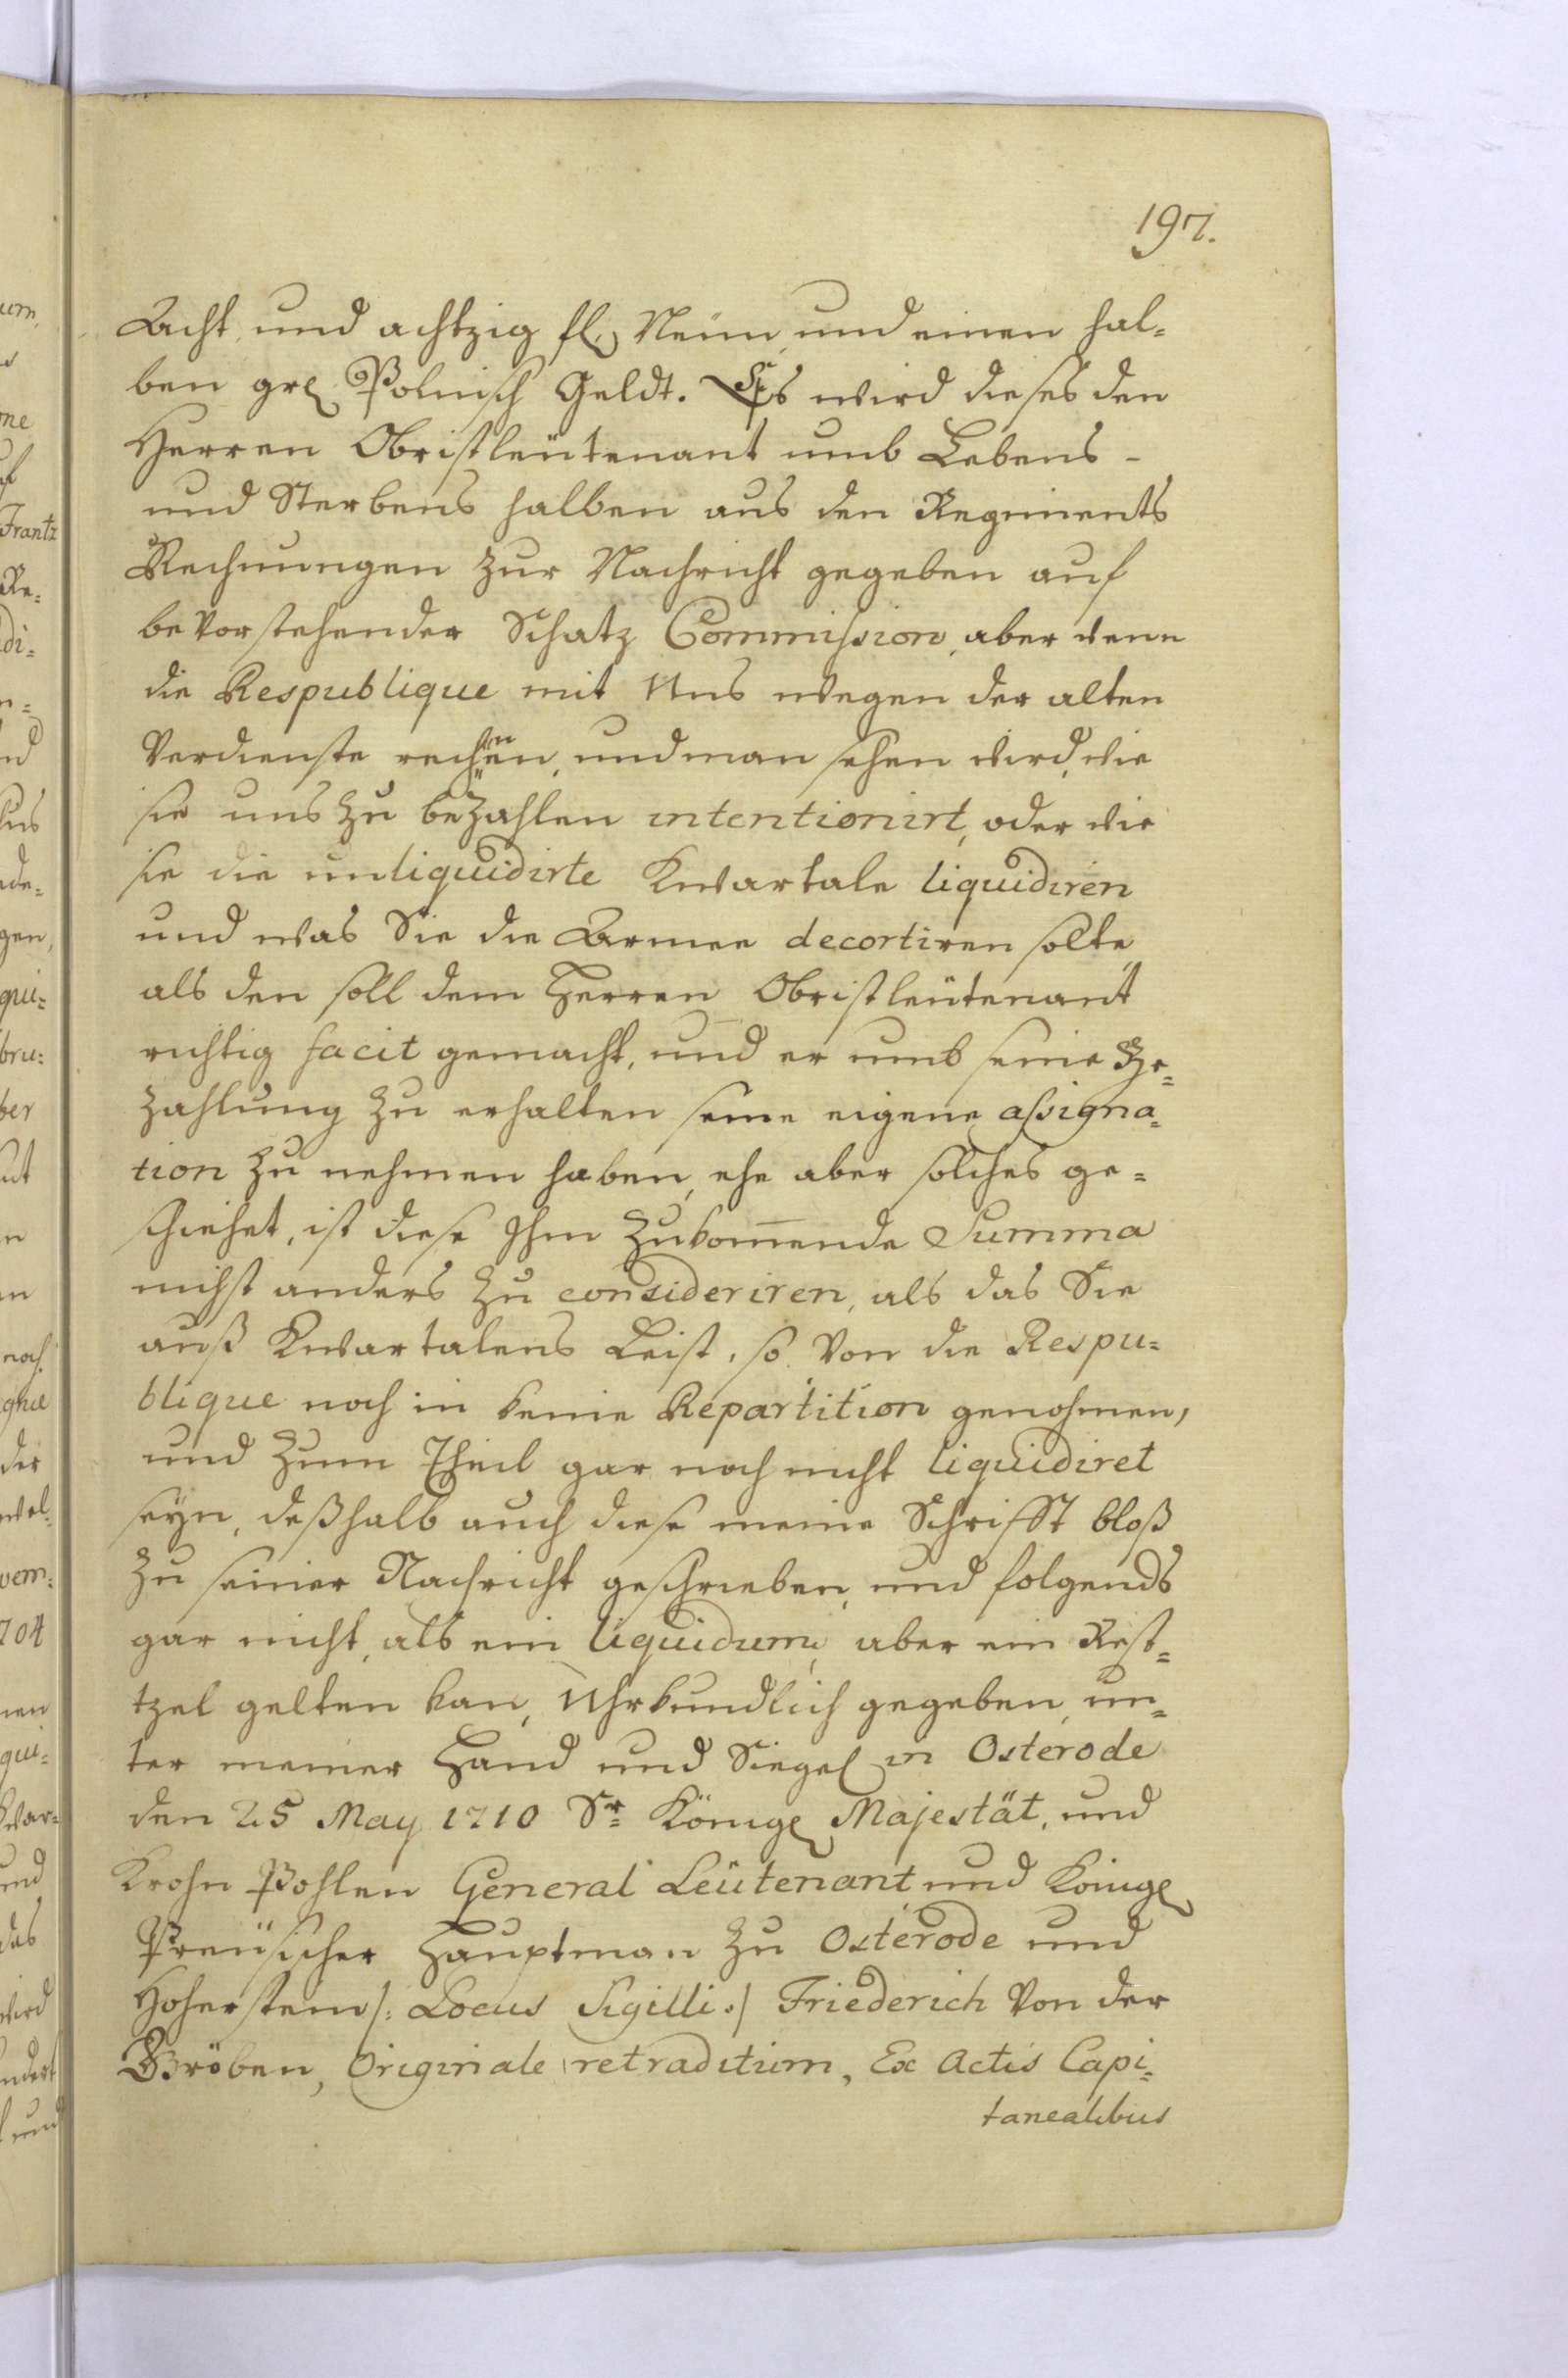 197.
Acht und achtzig fl. Neün und einen hal=
ben grl Polnisch Geldt. Es wird dieses den
Herren Obristleütenant umb Lebens-
und Sterbens halben aus den Regiments
Rechnungen zur Nachricht gegeben auf
bevorstehender Schatz Commission, aber wenn
die Respublique mit Uns wegen der alten
Verdienste rechnen, und man sehen wird, wie
sie uns zu bezahlen intentionirt, oder wie
sie die unliquidirte Kwartale liquidiren
und was Sie die Armee decortiren solte,
als den soll dem Herren Obristleütenant
richtig facit gemacht, und er umb seine Be=
zahlung zu erhalten seine eigene assigna=
tion zu nehmen haben, ehe aber solches ge=
schiehet, ist diese Ihm zukom̄ende Summa
nicht anders zu consideriren, als das Sie
auß Kwartalens Leist, so von die Respu=
blique noch in keine Repartition genohmen,
und zum Theil gar noch nicht liquidiret
seyn, deßhalb auch diese meine Schrifft bloß
zu seiner Nachricht geschrieben, und folgends
gar nicht, als ein liquidum, aber ein Rest=
tzel gelten kan, Uhrkundlich gegeben, un=
ter meiner Hand und Siegel in Osterode
den 25 May 1710 Sr= Königl Majestät, und
Krohn Pohlen General Leütenant und Königl
Preüsischer Hauptman zu Osterode und
Hoherstein /: Locus Sigilli :/ Friederich von der
Gröben, Originale retraditum, Ex Actis Capi=
tanealibus